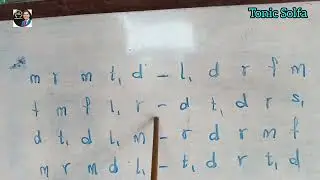 Tonic Solfa
m r m t, d - l, d r f m
f m f l, r - d t, d r s,
d t, d l, m - r d r m f
m r m d l, - t, d r t, d